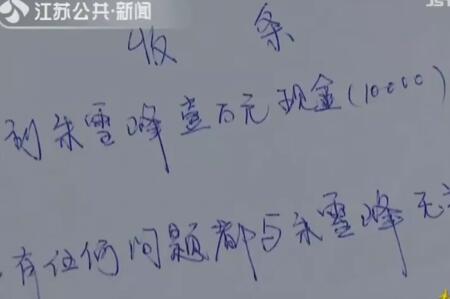 江苏公共·新闻
收 条
到朱雪峰壹万元现金(10000)
有任何问题都与朱雪峰无